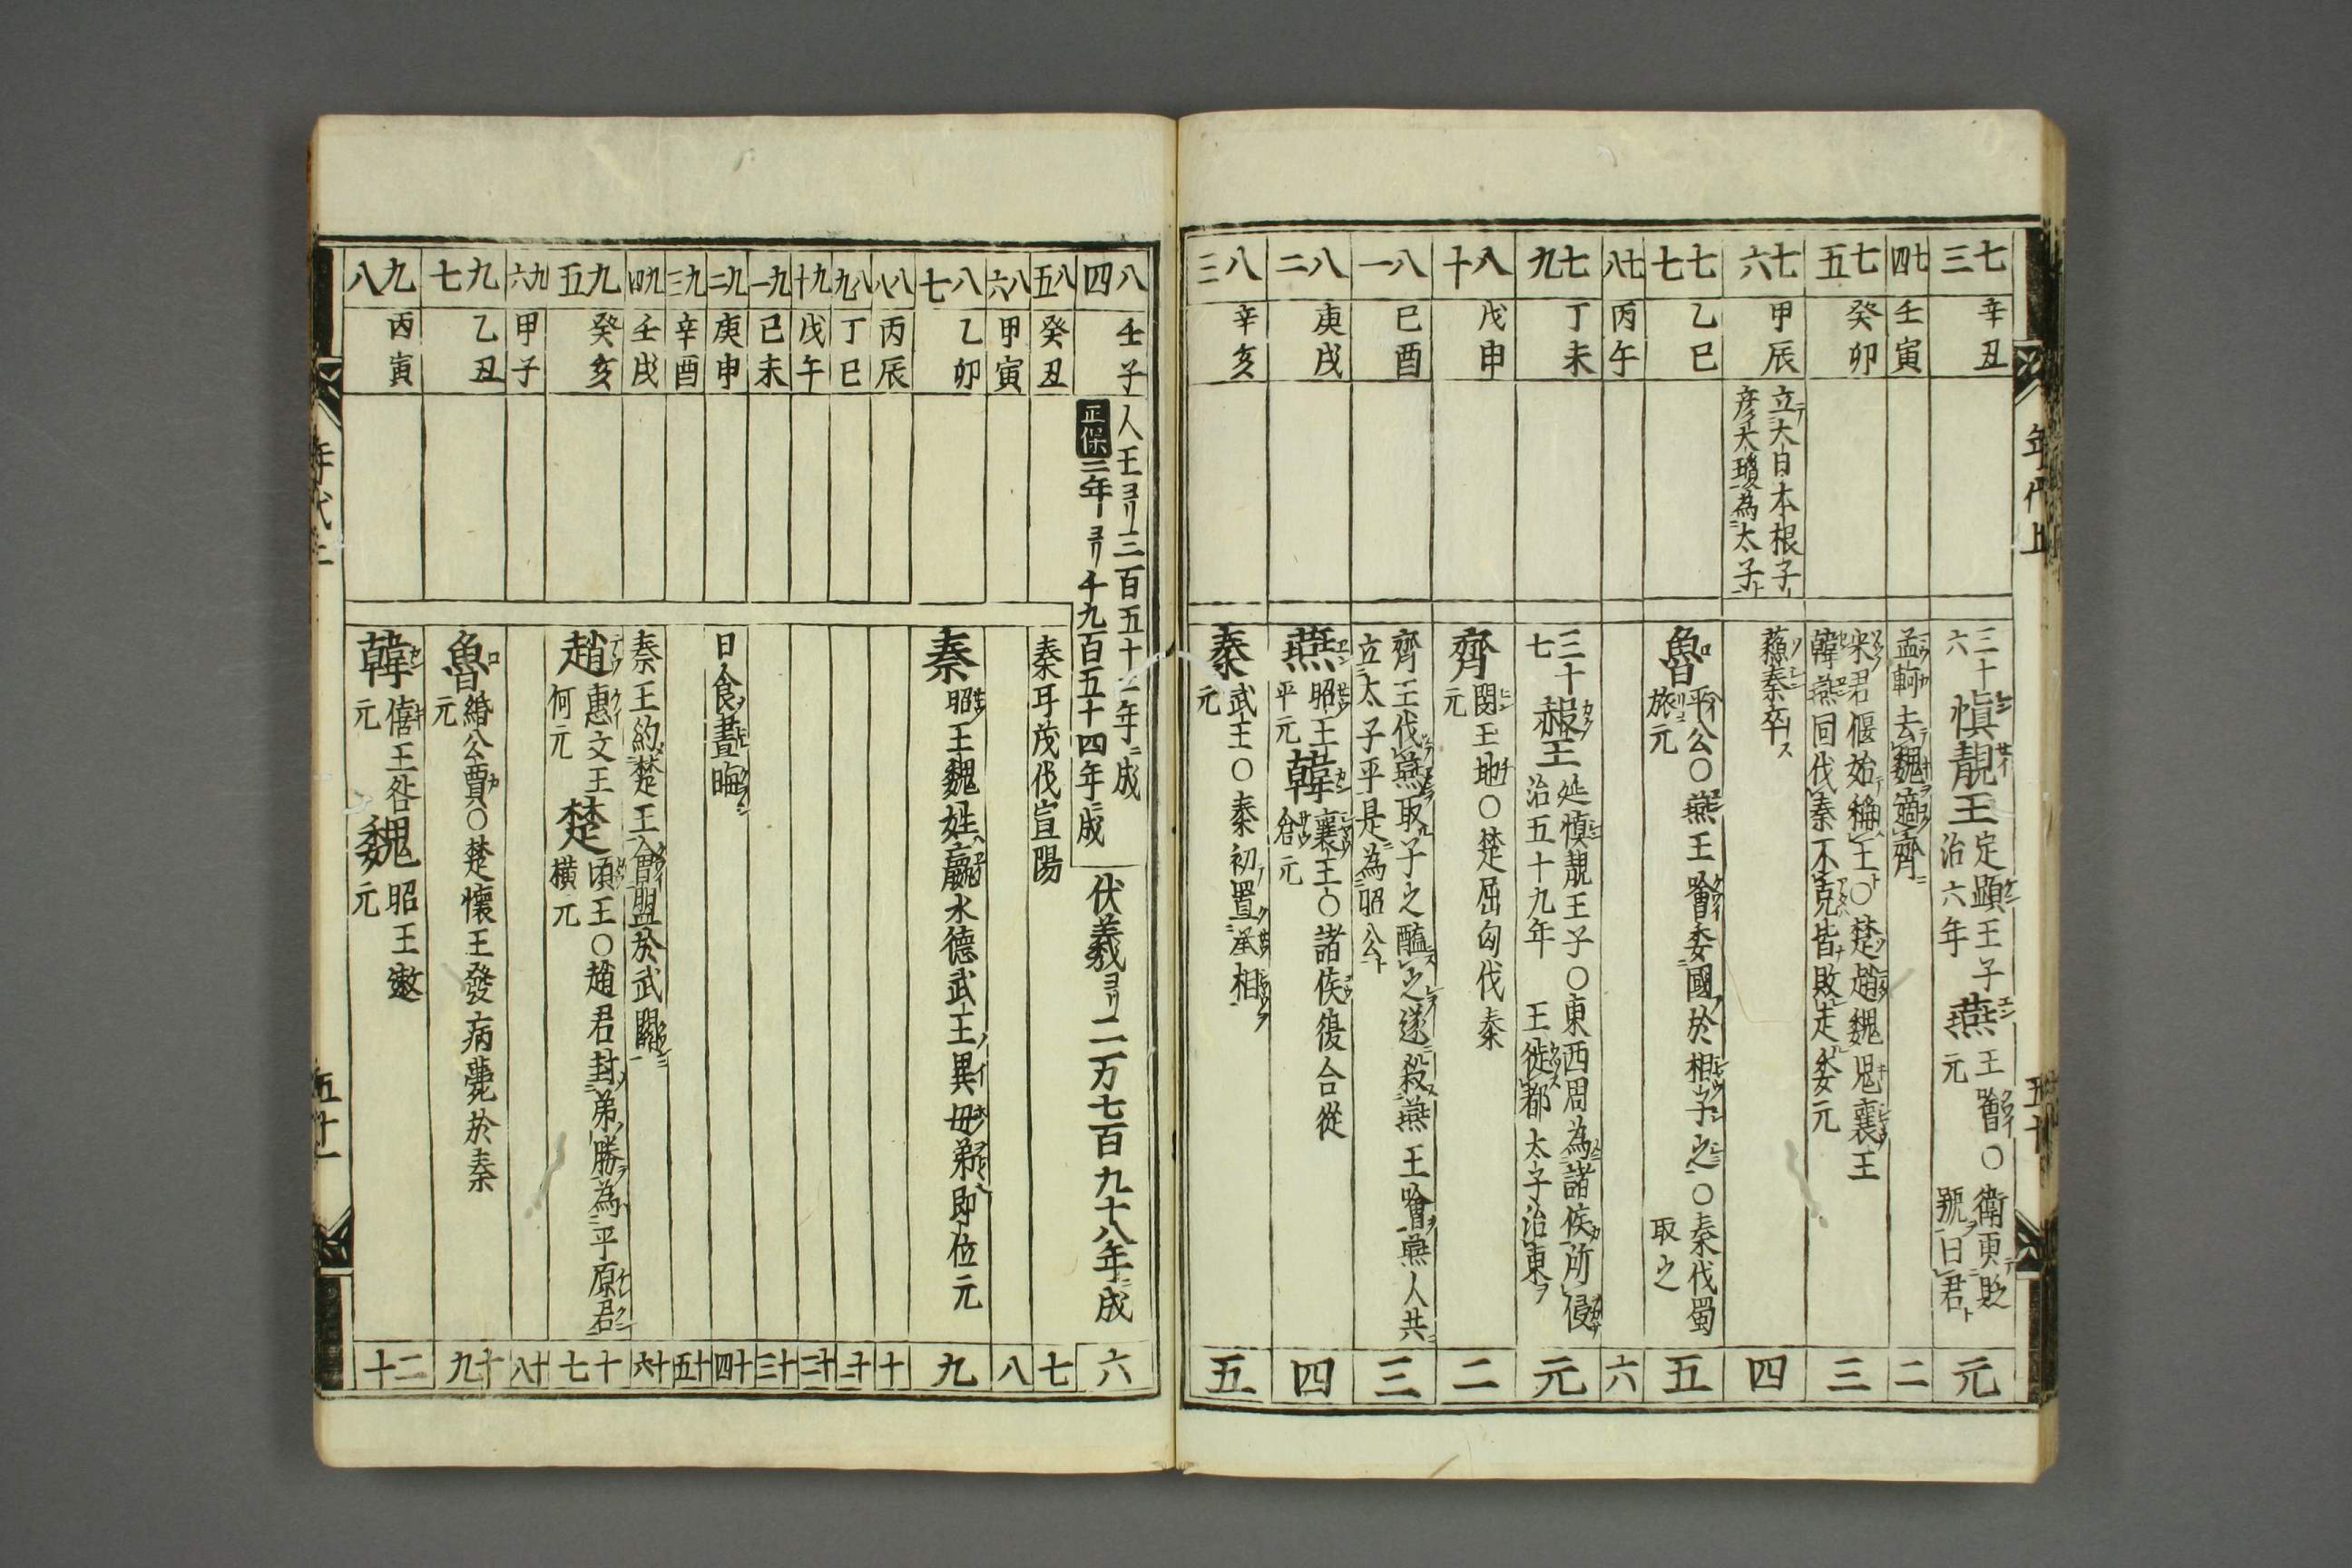 年代上
五十
七三
辛丑
三十六
慎靚王
定 顕王子
治六年
燕
王噲〇衛更貶
元
號曰君
元
七四
壬寅
孟軻去魏適齊
二
七五
癸卯
宋君偃始稱王〇楚趙魏 襄王
韓燕同伐秦不克皆敗走 元
三
七六
甲辰
立大日本根子
彦太瓊為太子
蘇秦卒
四
七七
乙巳
魯
平公〇燕王噲委國於相子之〇秦伐蜀
旅元
取之
五
七八
丙午
六
七九
丁未
三十七
赧王
延 慎靚王子〇東西周為諸侯所侵
治五十九年
王徙都太子治東
元
八十
戊申
齊
閔王地〇楚屈匄伐秦
元
二
八一
己酉
齊王伐燕取子之醢之遂殺燕王噲燕人共
立太子平是為昭公
三
八二
庚戌
燕
昭王
平元
韓
襄王〇諸侯復合從
倉元
四
八三
辛亥
秦
武王〇秦初置丞相
元
五
八四
壬子
人王ヨリ三百五十二年ニ成
正保三年ヨリ千九百五十四年ニ成
伏羲ヨリ二万七百九十八年ニ成
六
八五
癸丑
秦耳茂伐宣陽
七
八六
甲寅
八
八七
乙卯
秦
昭王魏姓嬴水德武王異母弟即位元
九
八八
丙辰
十
八九
丁巳
十一
九十
戊午
十二
九一
己未
十三
九二
庚申
日食晝晦
十四
九三
辛酉
十五
九四
壬戌
秦王約楚王入會盟於武關
十六
九五
癸亥
趙
惠文王
何元
楚
頃王〇趙君封弟勝為平原君
橫元
十七
九六
甲子
十八
九七
乙丑
魯
緡公賈〇楚懷王發病薨於秦
元
十九
九八
丙寅
韓
僖王咎
元
魏
昭王遫
元
二十
年代上
五十一